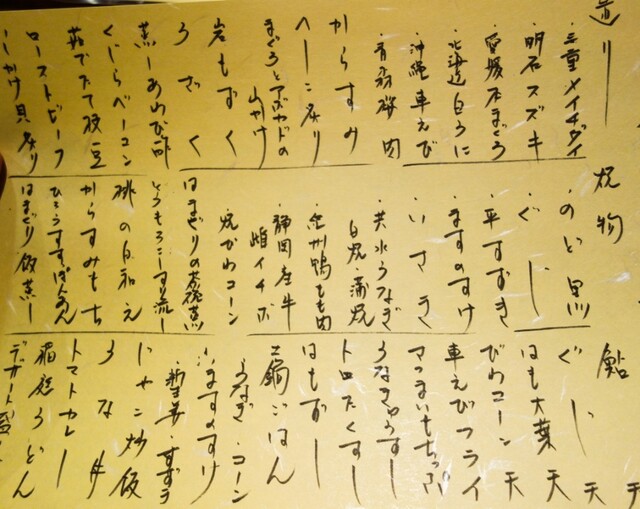 造り
・三重 メイチダイ
・明石 スズキ
・愛媛 本まぐろ
・北海道 白うに
・沖縄 車えび
・青森 桜肉
からすみ
へーこん炙り
まぐろとアボカドの
山かけ
岩もずく
うざく
蒸しあわび酢
くじらベーコン
茹でたて枝豆
ローストビーフ
しかけ貝炙り
炊物
・のど黒
・ぐじ
・平すずき
・ますのすけ
・いさき
・共水うなぎ
白焼・蒲焼
・紀州鴨もも肉
・静岡産牛
雌イチボ
・焼びわコーン
はまぐりの茶碗蒸
とうもろこしすり流し
桃の白和え
からすみもち
ひろうすすぽんあん
はまぐり飯蒸し
鮎 天
ぐじ 天
はも大葉 天
びわコーン 天
車えびフライ
さつまいもチップス
うなきゅうすし
トロたくすし
はもずし
土鍋ごはん
・うなぎ・コーン
・ますのすけ
・新生姜・すずき
じゃこ炒飯
うな丼
トマトカレー
稲庭うどん
デザート盛